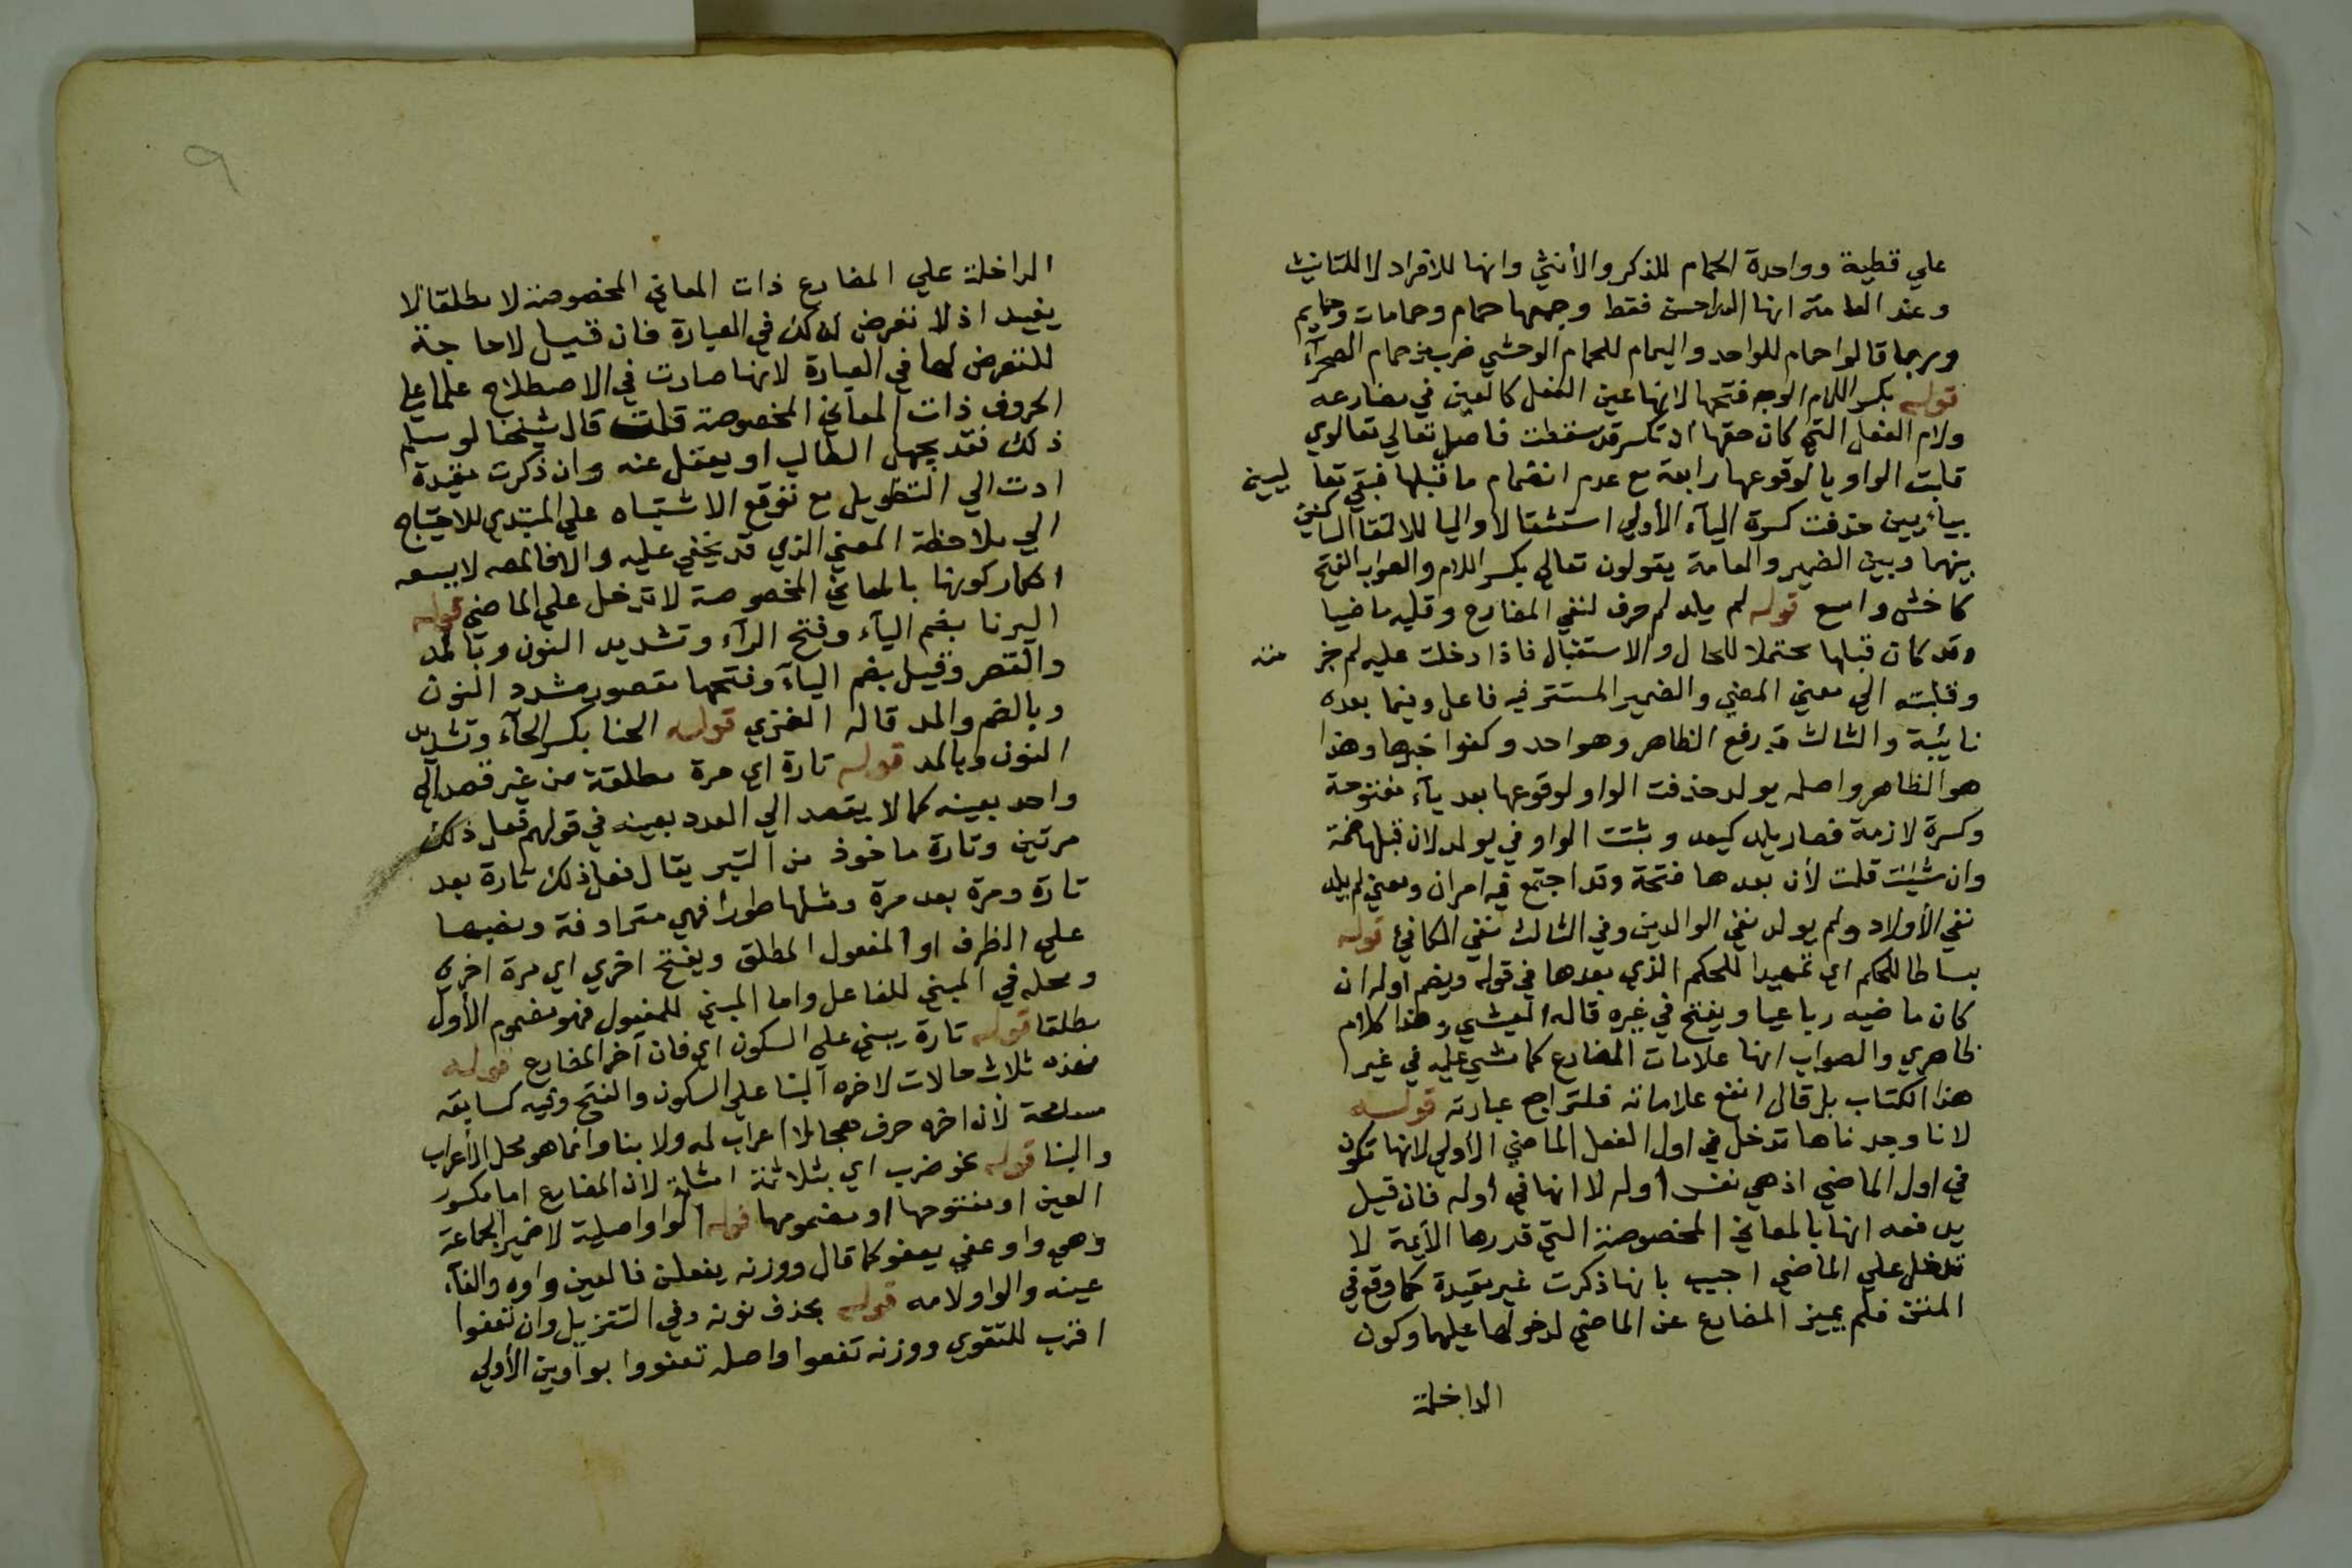 علي قطية وواحدة الحمام للذكر والأنثي وانها للافراد لا للتانيث
وعند العامة انها الدواجن فقط وجمعها حمام وحمامات وحمايم
وربما قالوا حمام للواحد واليمام للحمام الوحشي ضرب من حمام الصحرآء
قوله بكسر اللام الوجه فتحها لانها عين الفعل كالعين في مضارعه
ولام الفعل التي كان حقها ان تكسر قد سقطت فاصل تعالي تعالوي
قلبت الواو يا لوقوعها رابعة مع عدم انضمام ما قبلها فبقي تعا ليين
بياءيين حذفت كسرة اليآء الأولي استثقالا واليا لالتقا الساكنين
بينهما وبين الضمير والعامة يقولون تعالي بكسر اللام والصواب الفتح
كاخشي واسع قوله لم يلد لم حرف لنفي المضارع وقلبه ماضيا
وقد كان قبلها محتملا للحال والاستقبال فاذا دخلت عليه لم جز منه
وقلبته الي معني المضي والضمير المستتر فيه فاعل وفيما بعده
نائبة والثالث قد رفع الظاهر وهو احد وكفوا خبرها وهذا
هو الظاهر واصله يولد حذفت الواو لوقوعها بعد يآء مفتوحة
وكسرة لازمة فصار يلد كيعد وبثتت الواو في يولد لان قبلها ضمة
وان شيئت قلت لأن بعدها فتحة وقد اجتمع فيه امران ومعني لم يلد
نفي الأولاد ولم يولد نفي الوالدين وفي الثالث نفي المكافئ قوله
بساطا للحكم اي تمهيدا للحكم الذي بعدها في قوله ويضم اوله ان
كان ماضيه رباعيا ويفتح في غيره قاله الفيشي وهذا كلام
ظاهري والصواب انها علامات المضارع كما مشي عليه في غير
هذا الكتاب بل قال انفع علاماته فلتراجع عبارته قوله
لانا وجدناها تدخل في اول الفعل الماضي الأولي لانها تكون
في اول الماضي اذ هي نفس أوله لا انها في أوله فان قيل
يدفعه انها بالمعاني المخصوصة التي قدرها الأيمة لا
تدخل علي الماضي اجيب بانها ذكرت غير مقيدة كما وقع في
المتن فلم يميز المضارع عن الماضي لدخولها عليهما وكون
الداخلة
الداخلة علي المضارع ذات المعاني المخصوصة لا مطلقا لا
يفيد اذ لا تعرض لذلك في العبارة فان قيل لا حاجة
للتعرض لها في العبارة لانها صارت في الاصطلاح علما علي
الحروف ذات المعاني المخصوصة قلت قال شيخنا لو سلم
ذلك فقد يجهل الطالب او يغفل عنه وان ذكرت مقيدة
ادت الي التطويل مع توقع الاشتباه علي المبتدي للاحتياج
الي ملاحظة المعني الذي قد يخفي عليه والا فالخصم لا يسعه
انكار كونها بالمعاني المخصوصة لا تدخل علي الماضي قوله
اليرنا بضم اليآء وفتح الرآء وتشديد النون وبالمد
والقصر وقيل بضم اليآء وفتحها مقصور مشدد النون
وبالضم والمد قاله الغزي قوله الحنا بكسر الحآء وتشديد
النون وبالمد قوله تارة اي مرة مطلقة من غير قصد الي
واحد بعينه كما لا يقصد الي العدد بعينه في قولهم فعل ذلك
مرتين وتارة ماخوذ من التير يقال فعل ذلك تارة بعد
تارة ومرة بعد مرة ومثلها طورا فهي مترادفة ونصبها
علي الظرف او المفعول المطلق ويفتح اخري اي مرة اخري
ومحله في المبني للفاعل واما المبني للمفعول فهو مضموم الأول
مطلقا قوله تارة يبني علي السكون اي فان آخر المضارع قوله
فهذه ثلاث حالات لاخره البنا علي السكون والفتح وفيه كسابقه
مسامحة لأن اخره حرف هجا لا اعراب له ولا بنا وانما هو محل الأعراب
والبنا قوله نحو ضرب اي بثلاثة امثلة لان المضارع اما مكسور
العين او مفتوحها او مضمومها قوله الواو اصلية لا ضمير الجماعة
وهي واو عفي يعفو كما قال ووزنه يفعلن فالعين واوه والفآء
عينه والواو لامه قوله بحذف نونه وفي التنزيل وان تعفوا
اقرب للتقوي ووزنه تفعوا واصله تعفووا بواوين الأولي